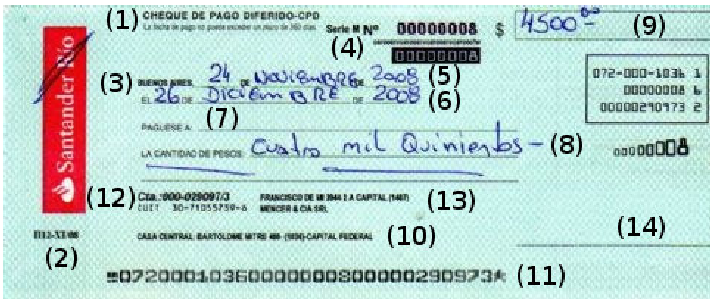 (1) CHEQUE DE PAGO DIFERIDO-CPD
La fecha de pago no puede exceder un plazo de 360 días
Serie M Nº 00000008 $ 4500 00 (9)
(4) 00000008
(3) BUENOS AIRES, 24 DE NOVIEMBRE DE 2008 (5)
EL 26 DE DICIEMBRE DE 2008 (6)
072-000-1036 1
00000008 6
00000290973 2
(7)
PAGUESE A
LA CANTIDAD DE PESOS: Cuatro mil Quinientos - (8)
00000008
Santander Río
(12) Cta.:000-029097/3 FRANCISCO DE MI 3944 2 A CAPITAL (1407)
CUIT 30-71055739-6 MENCER & CIA SRL (13)
(2)
CASA CENTRAL: BARTOLOME MITRE 480- (1036)-CAPITAL FEDERAL (10)
(14)
072000103600000008000000290973 (11)